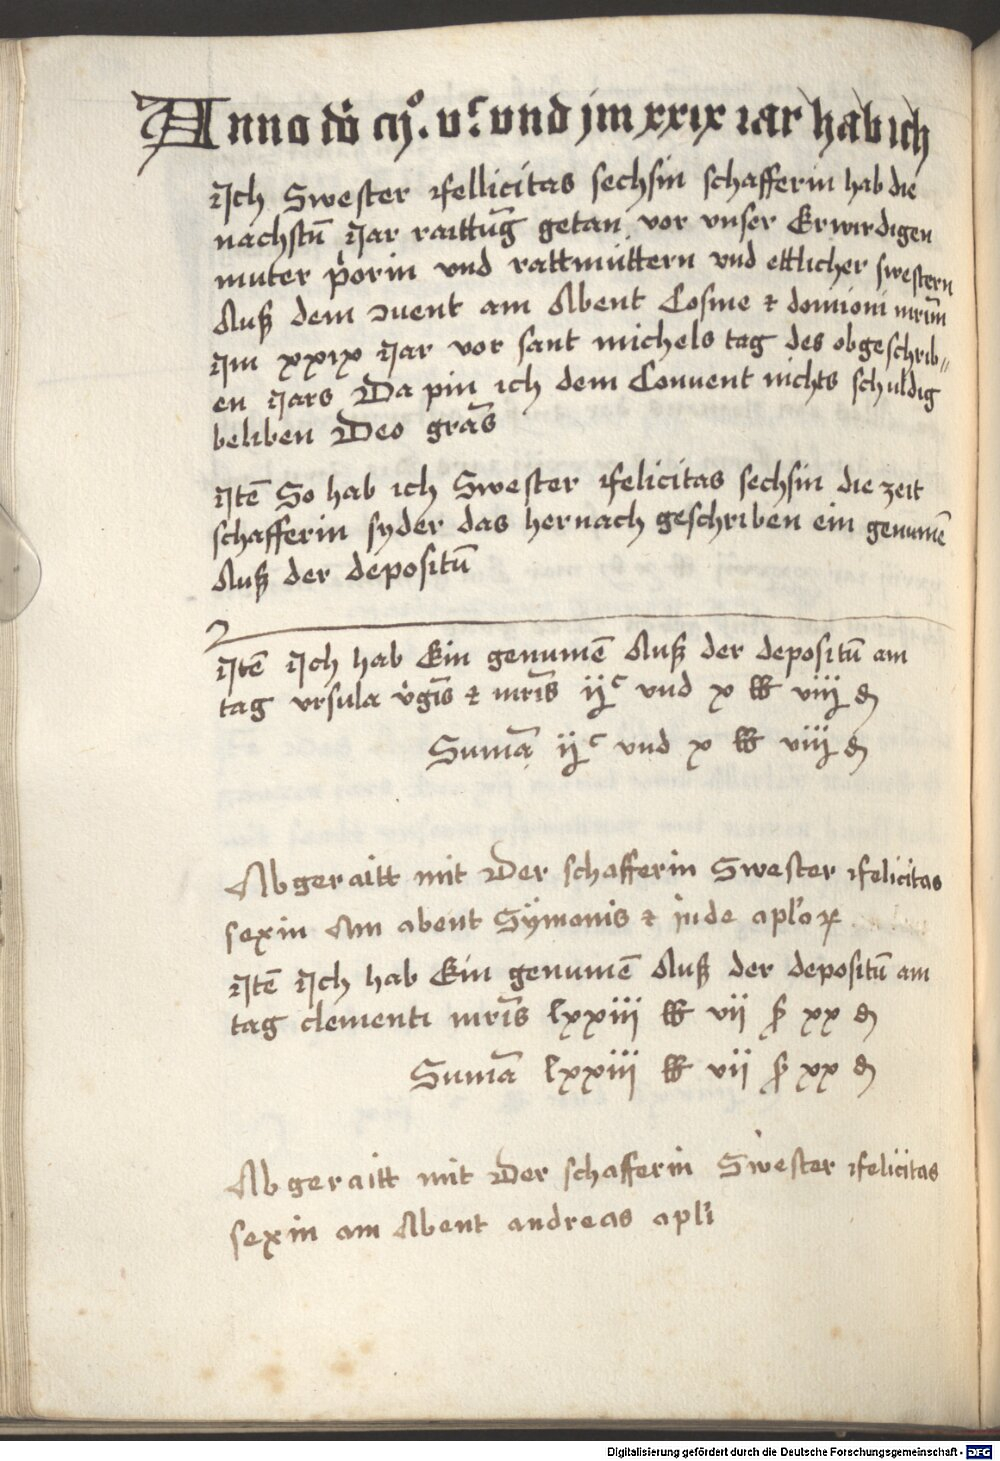 Anno dō mͦ. vᶜ. vnd jm xxix iar hab ich
Jch Swester ffellicitas sechsin schafferin hab die
nachstū Jar raittūg getan vor vnser Erwirdigen
muter p̄orin vnd rattmüttern vnd ettlicher swestern
Auß dem 2uent am Abent Cosme et domioni mrīm
Jm xxix Jar vor sant michels tag des obgeschrib„
en Jars Da pin ich dem Conuent nichts schuldig
beliben Deo grās
Jtē So hab ich Swester ffelicitas sechsin die zeit
schafferin syder das hernach geschriben ein genumē
Auß der depositū
Jtē Jch hab Ein genumē Auß der depositū am
tag vrsula v̄gīs et mrīs ijᶜ vnd x ℔ viij ₰
Sumā ijᶜ vnd x ℔ viij ₰
Abgeraitt mit Der schafferin Swester ffelicitas
sexin Am abent Sÿmonis et jude aplōꝝ
Jtē Jch hab Ein genumē Auß der depositū am
tag clementi mrīs lxxiij ℔ vij ß xx ₰
Sumā lxxiij ℔ vij ß xx ₰
Abgeraitt mit Der schafferin Swester ffelicitas
sexin am Abent andreas apl'i
Digitalisierung gefördert durch die Deutsche Forschungsgemeinschaft - DFG